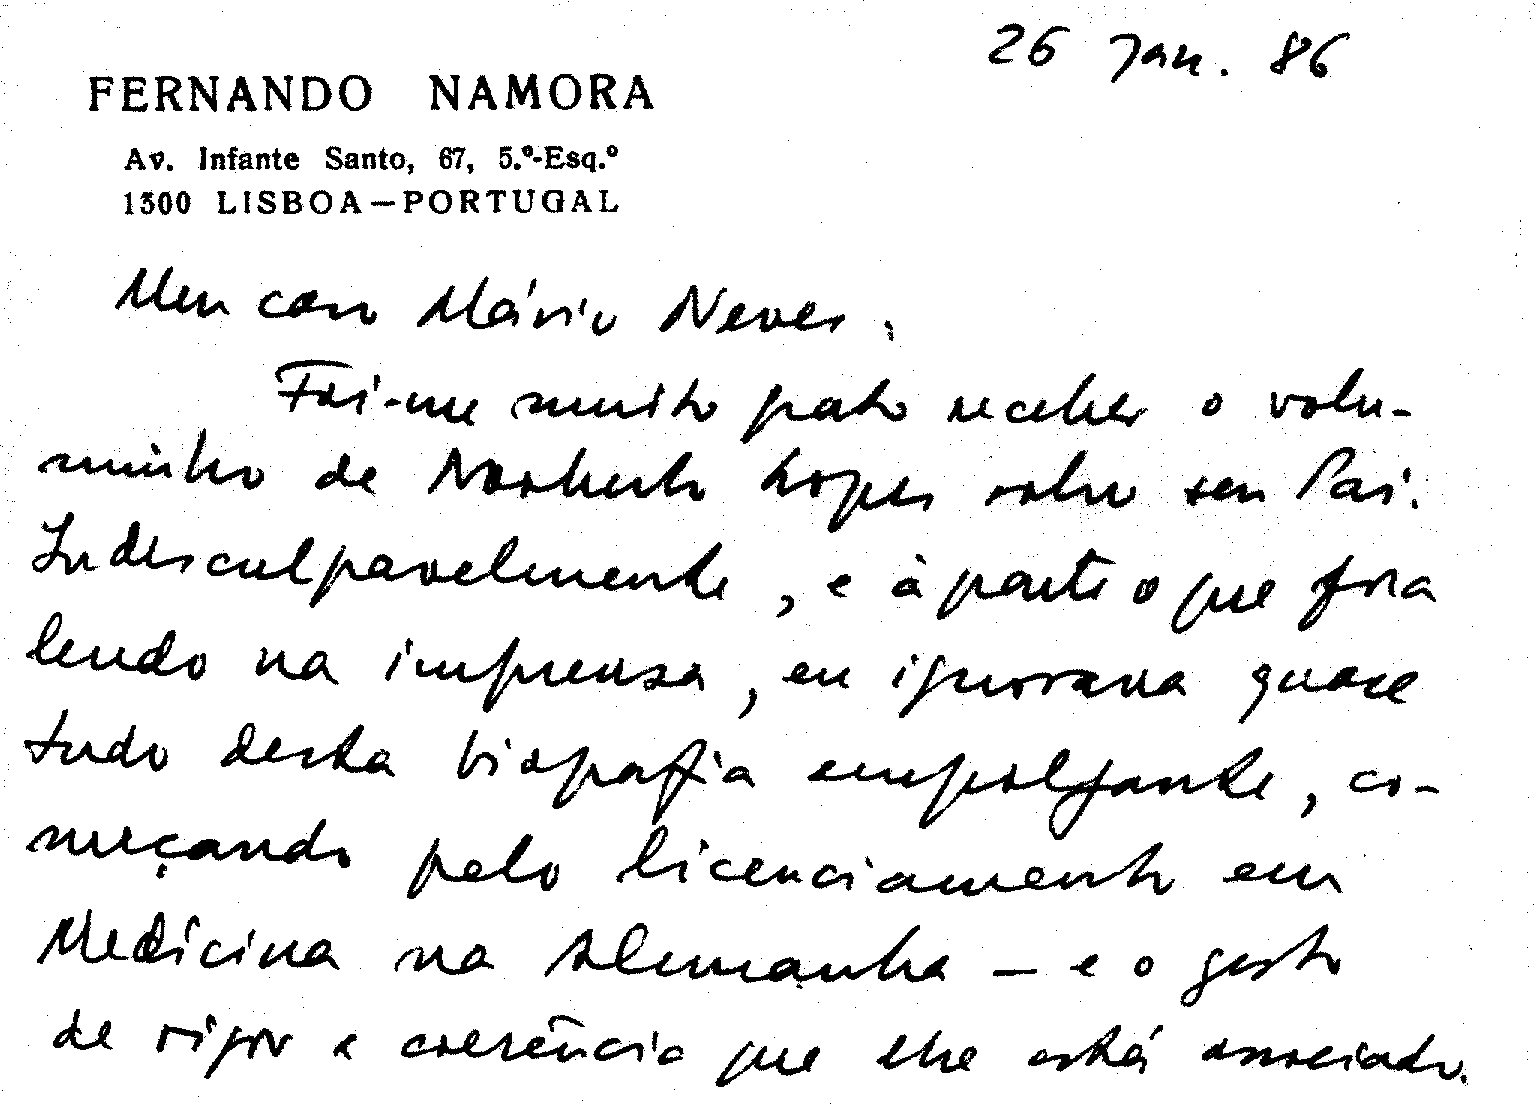 26 Jan. 86
FERNANDO NAMORA
Av. Infante Santo, 67, 5.º-Esq.º
1300 LISBOA—PORTUGAL
Meu caro Mário Neves,
Foi-me muito grato receber o volu-
minho de Norberto Lopes sobre seu Pai.
Indesculpavelmente, e à parte o que fora
lendo na imprensa, eu ignorava quase
tudo desta biografia empolgante, co-
meçando pelo licenciamento em
Medicina na Alemanha — e o gesto
de rigor e coerência que lhe está associado.